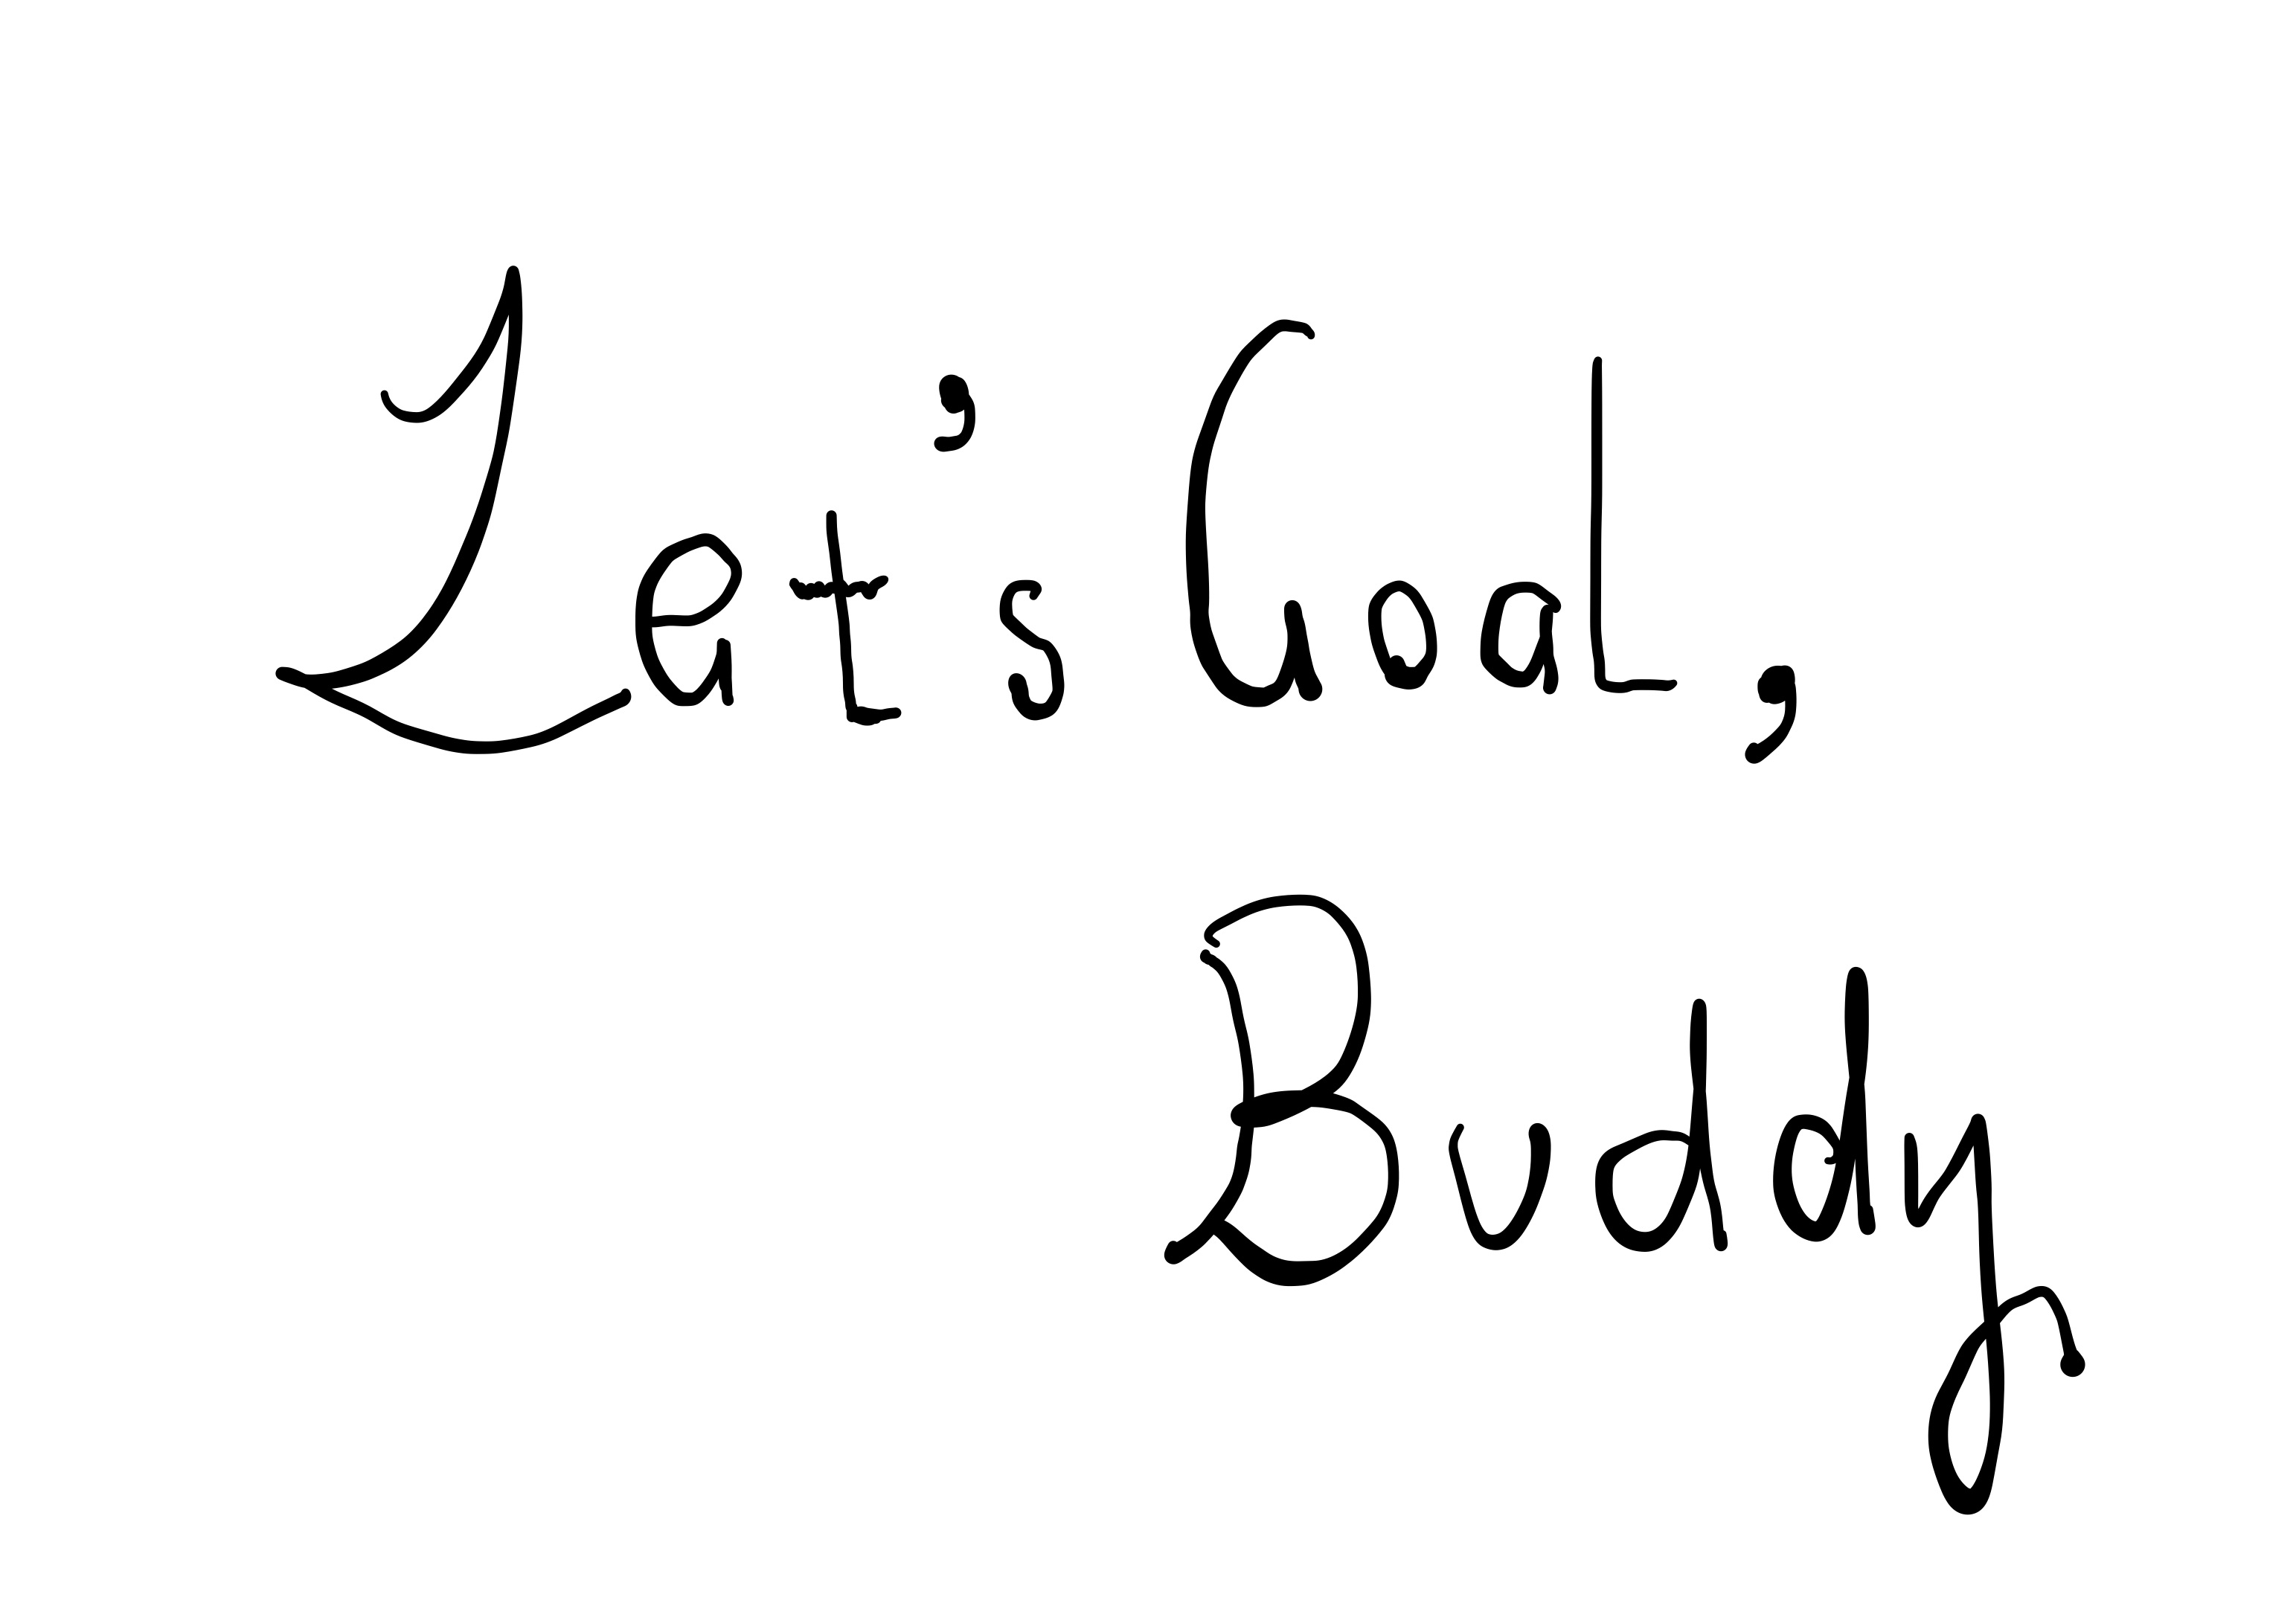 Let's Goal,
Buddy